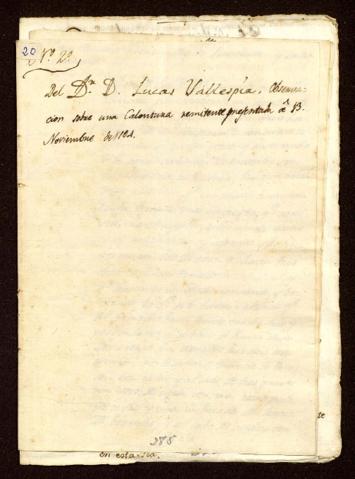 20
Nº. 2º.
Del Dr. D. Lucas Vallespìa. Observa-
cion sobre una Calentura remitente presentada â 13.
Noviembre de
285
en esta